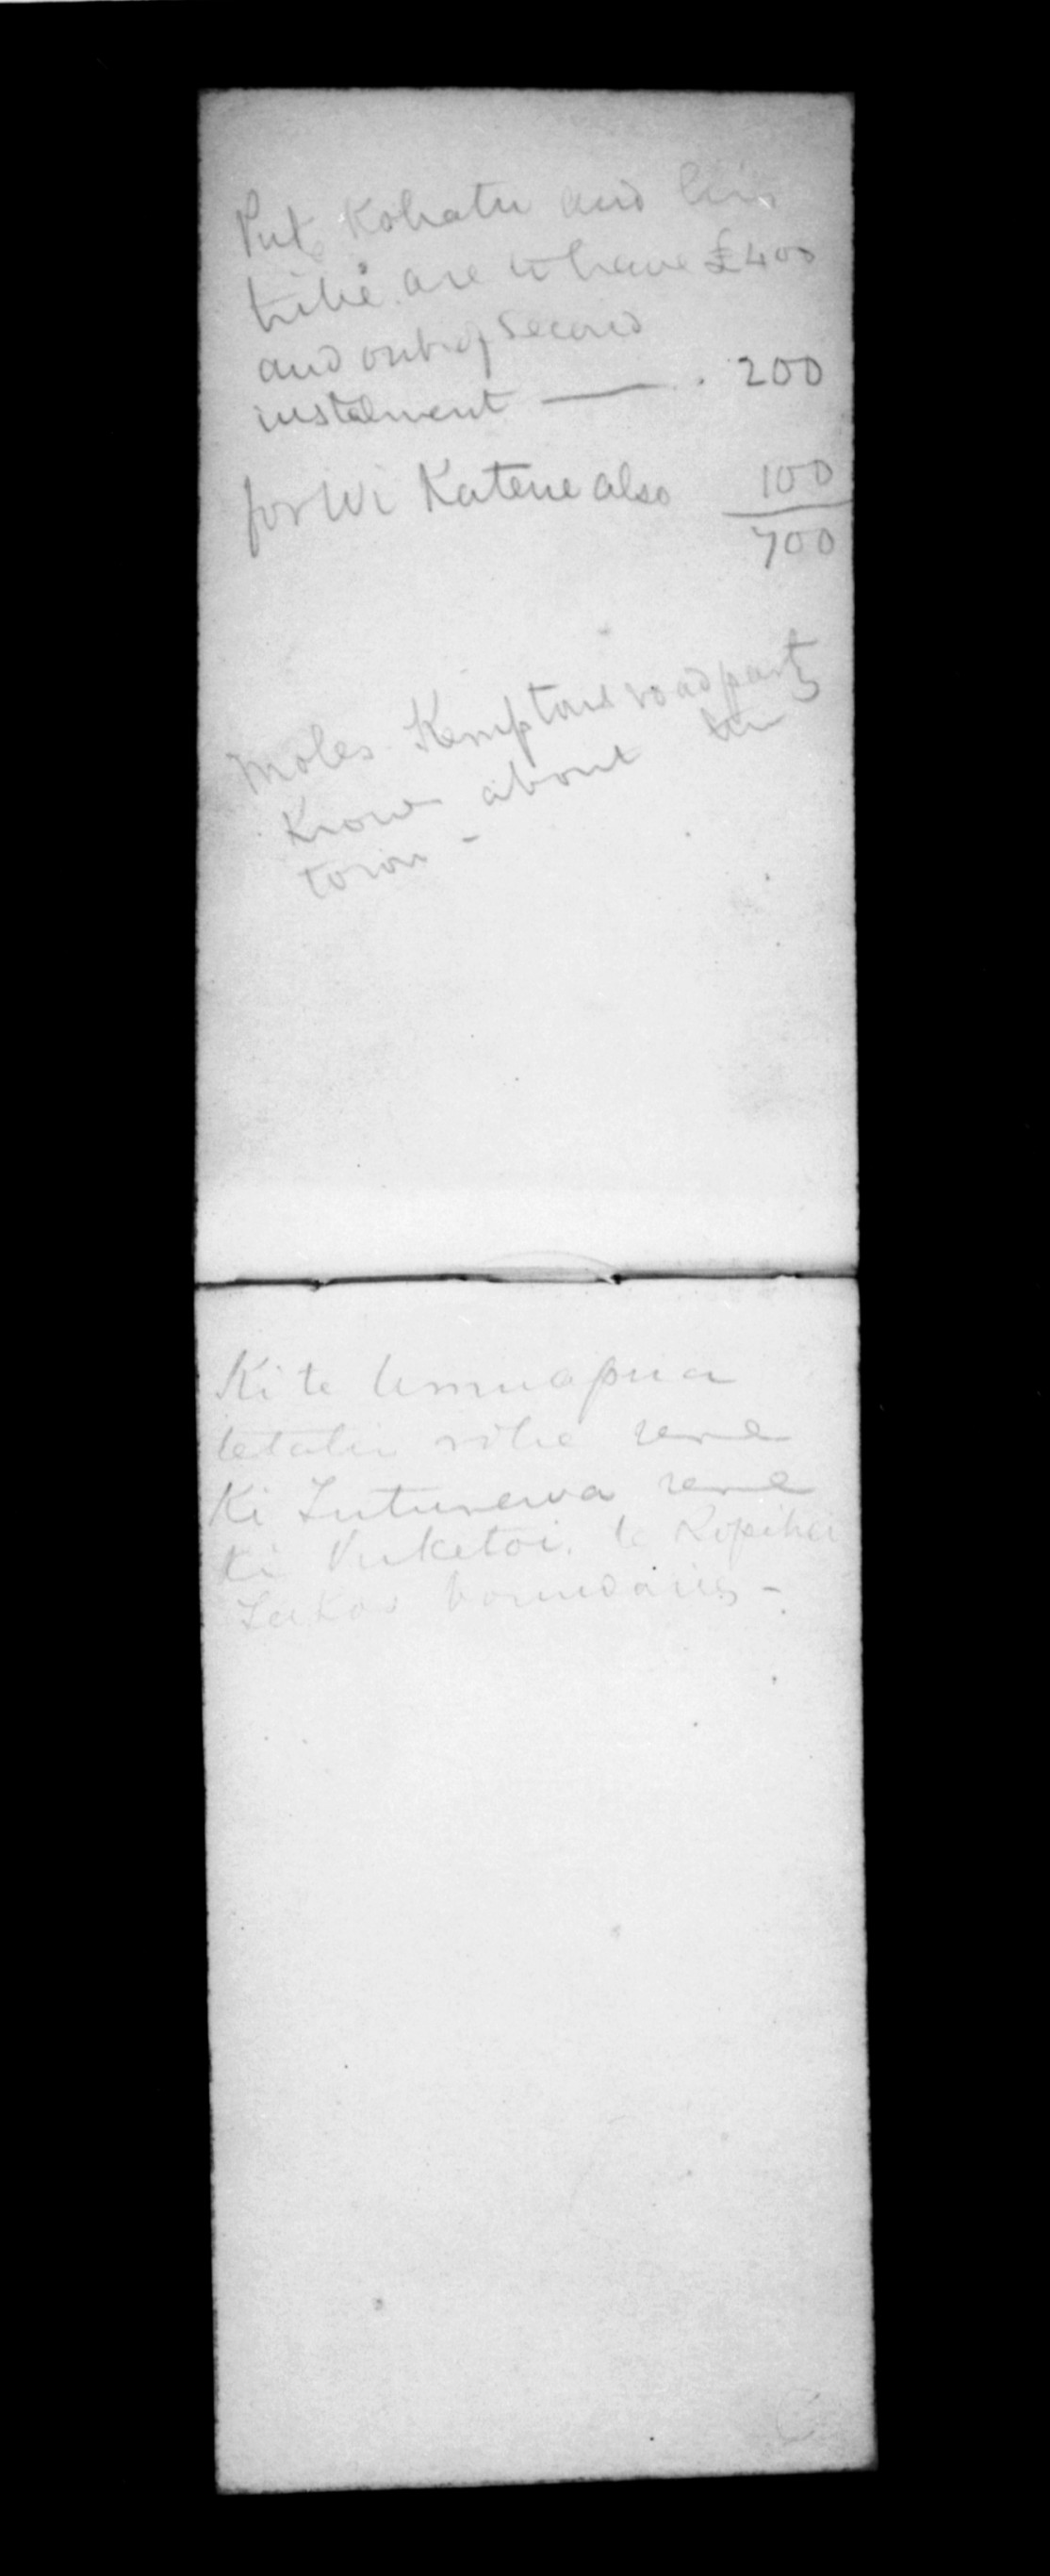 Kohatu and his
tribe are to have £400
and out of second
instalment — 200
for Wi Katene also 100
700
Moles Kemptons road party
Know about the
town -
Ki te Umuapua
rohe rere
Ki Tuturewa rere
Ki Puketoi. te Kopihai
boundaries -